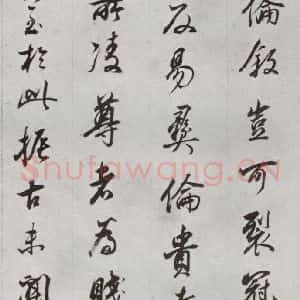 倫敘豈可裂冠
反易彝倫貴
所凌尊者為賤
至於此振古未聞
Shufawang.CN